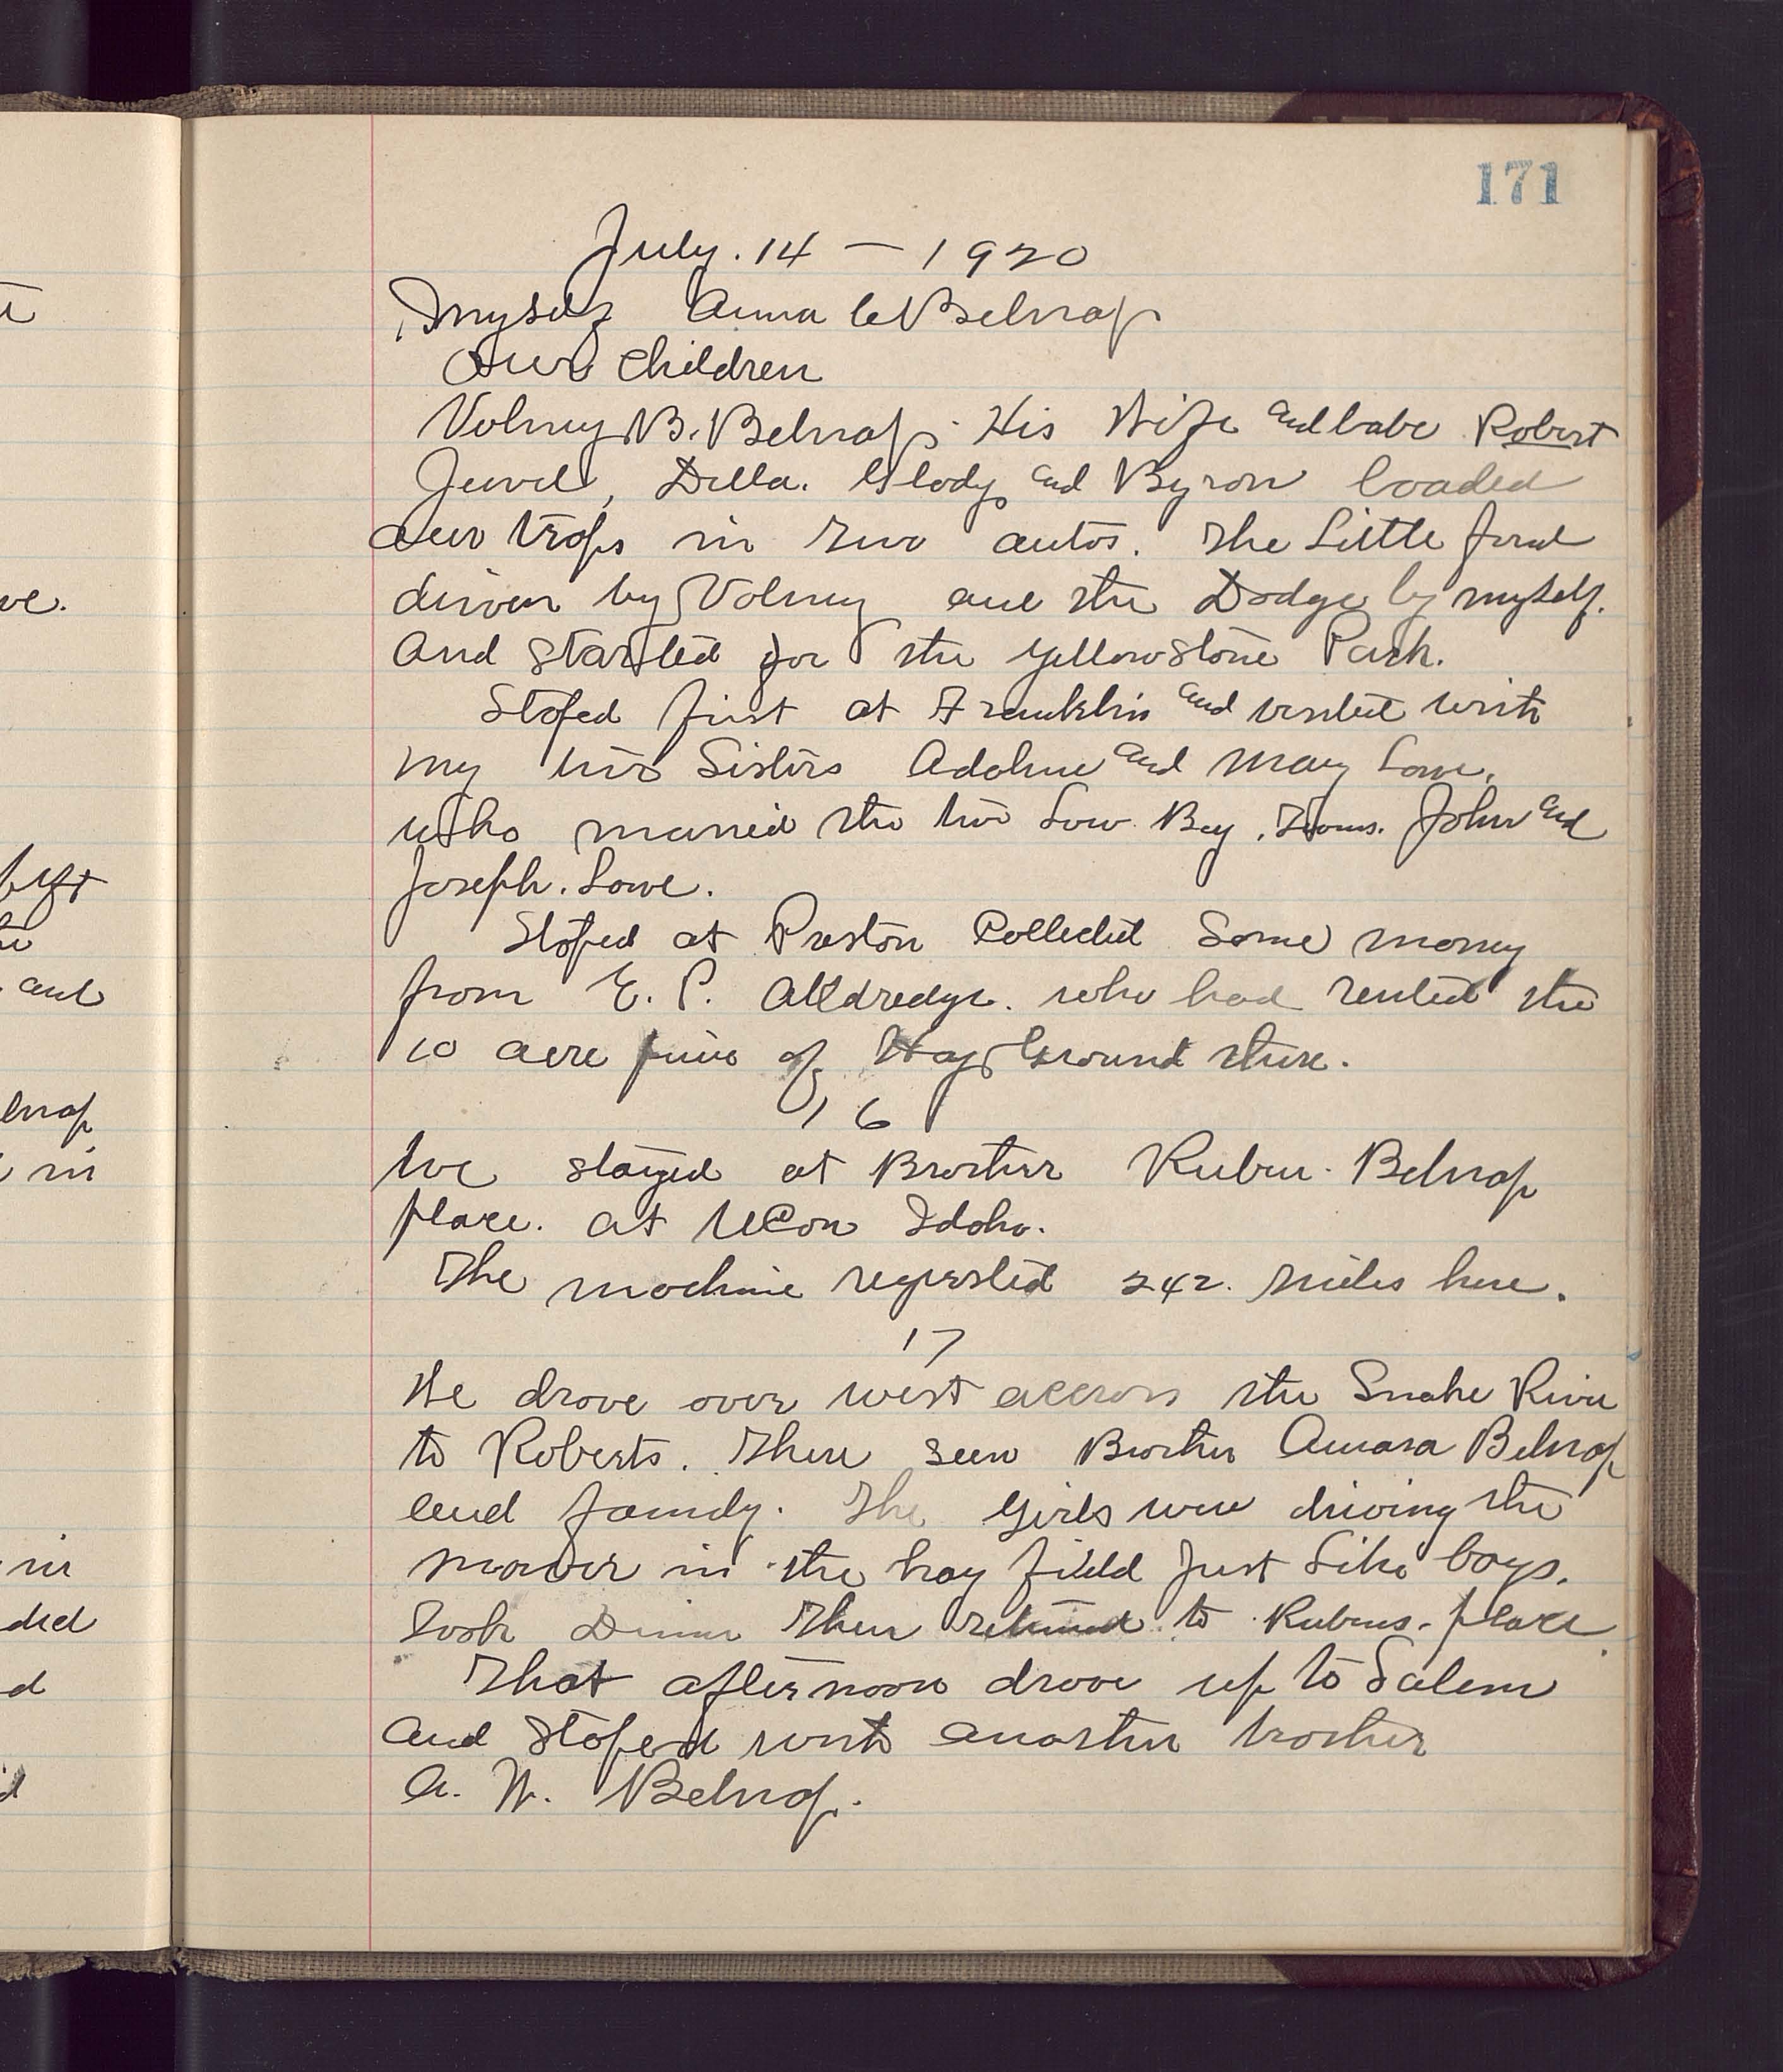 171
July. 14 — 1920
I myself Anna C Belnap
Our Children
Volney B. Belnap His Wife and babe Robert
Jewel, Della. Glodys and Byron loaded
our traps in two autos. The Little ford
driven by Volney and the Dodge by myself.
And started for the Yellowstone Park.
Stoped first at Franklin and visited with
my two Sisters Adoline and Mary Lowe,
who married the two Low Boy. Thoms. John and
Joseph. Lowe.
Stoped at Preston Collected Some money
from E. P. Alldredge. who had rented the
10 acre piece of Hay Ground there.
16
We stayed at Brother Ruben. Belnap
place. at UCon Idoho.
The machine regersted 242. miles here.
17
We drove over west accross the Snake River
to Roberts. There seen Brother Amasa Belnap
and family. The Girls were driving the
mower in the hay field Just Like boys.
Took Dinner then returned to Rubens. place
That afternoon drove up to Salem
and Stoped with another brother
A. W. Belnap.
ve.
left
and
elnap
in
in
ded
d